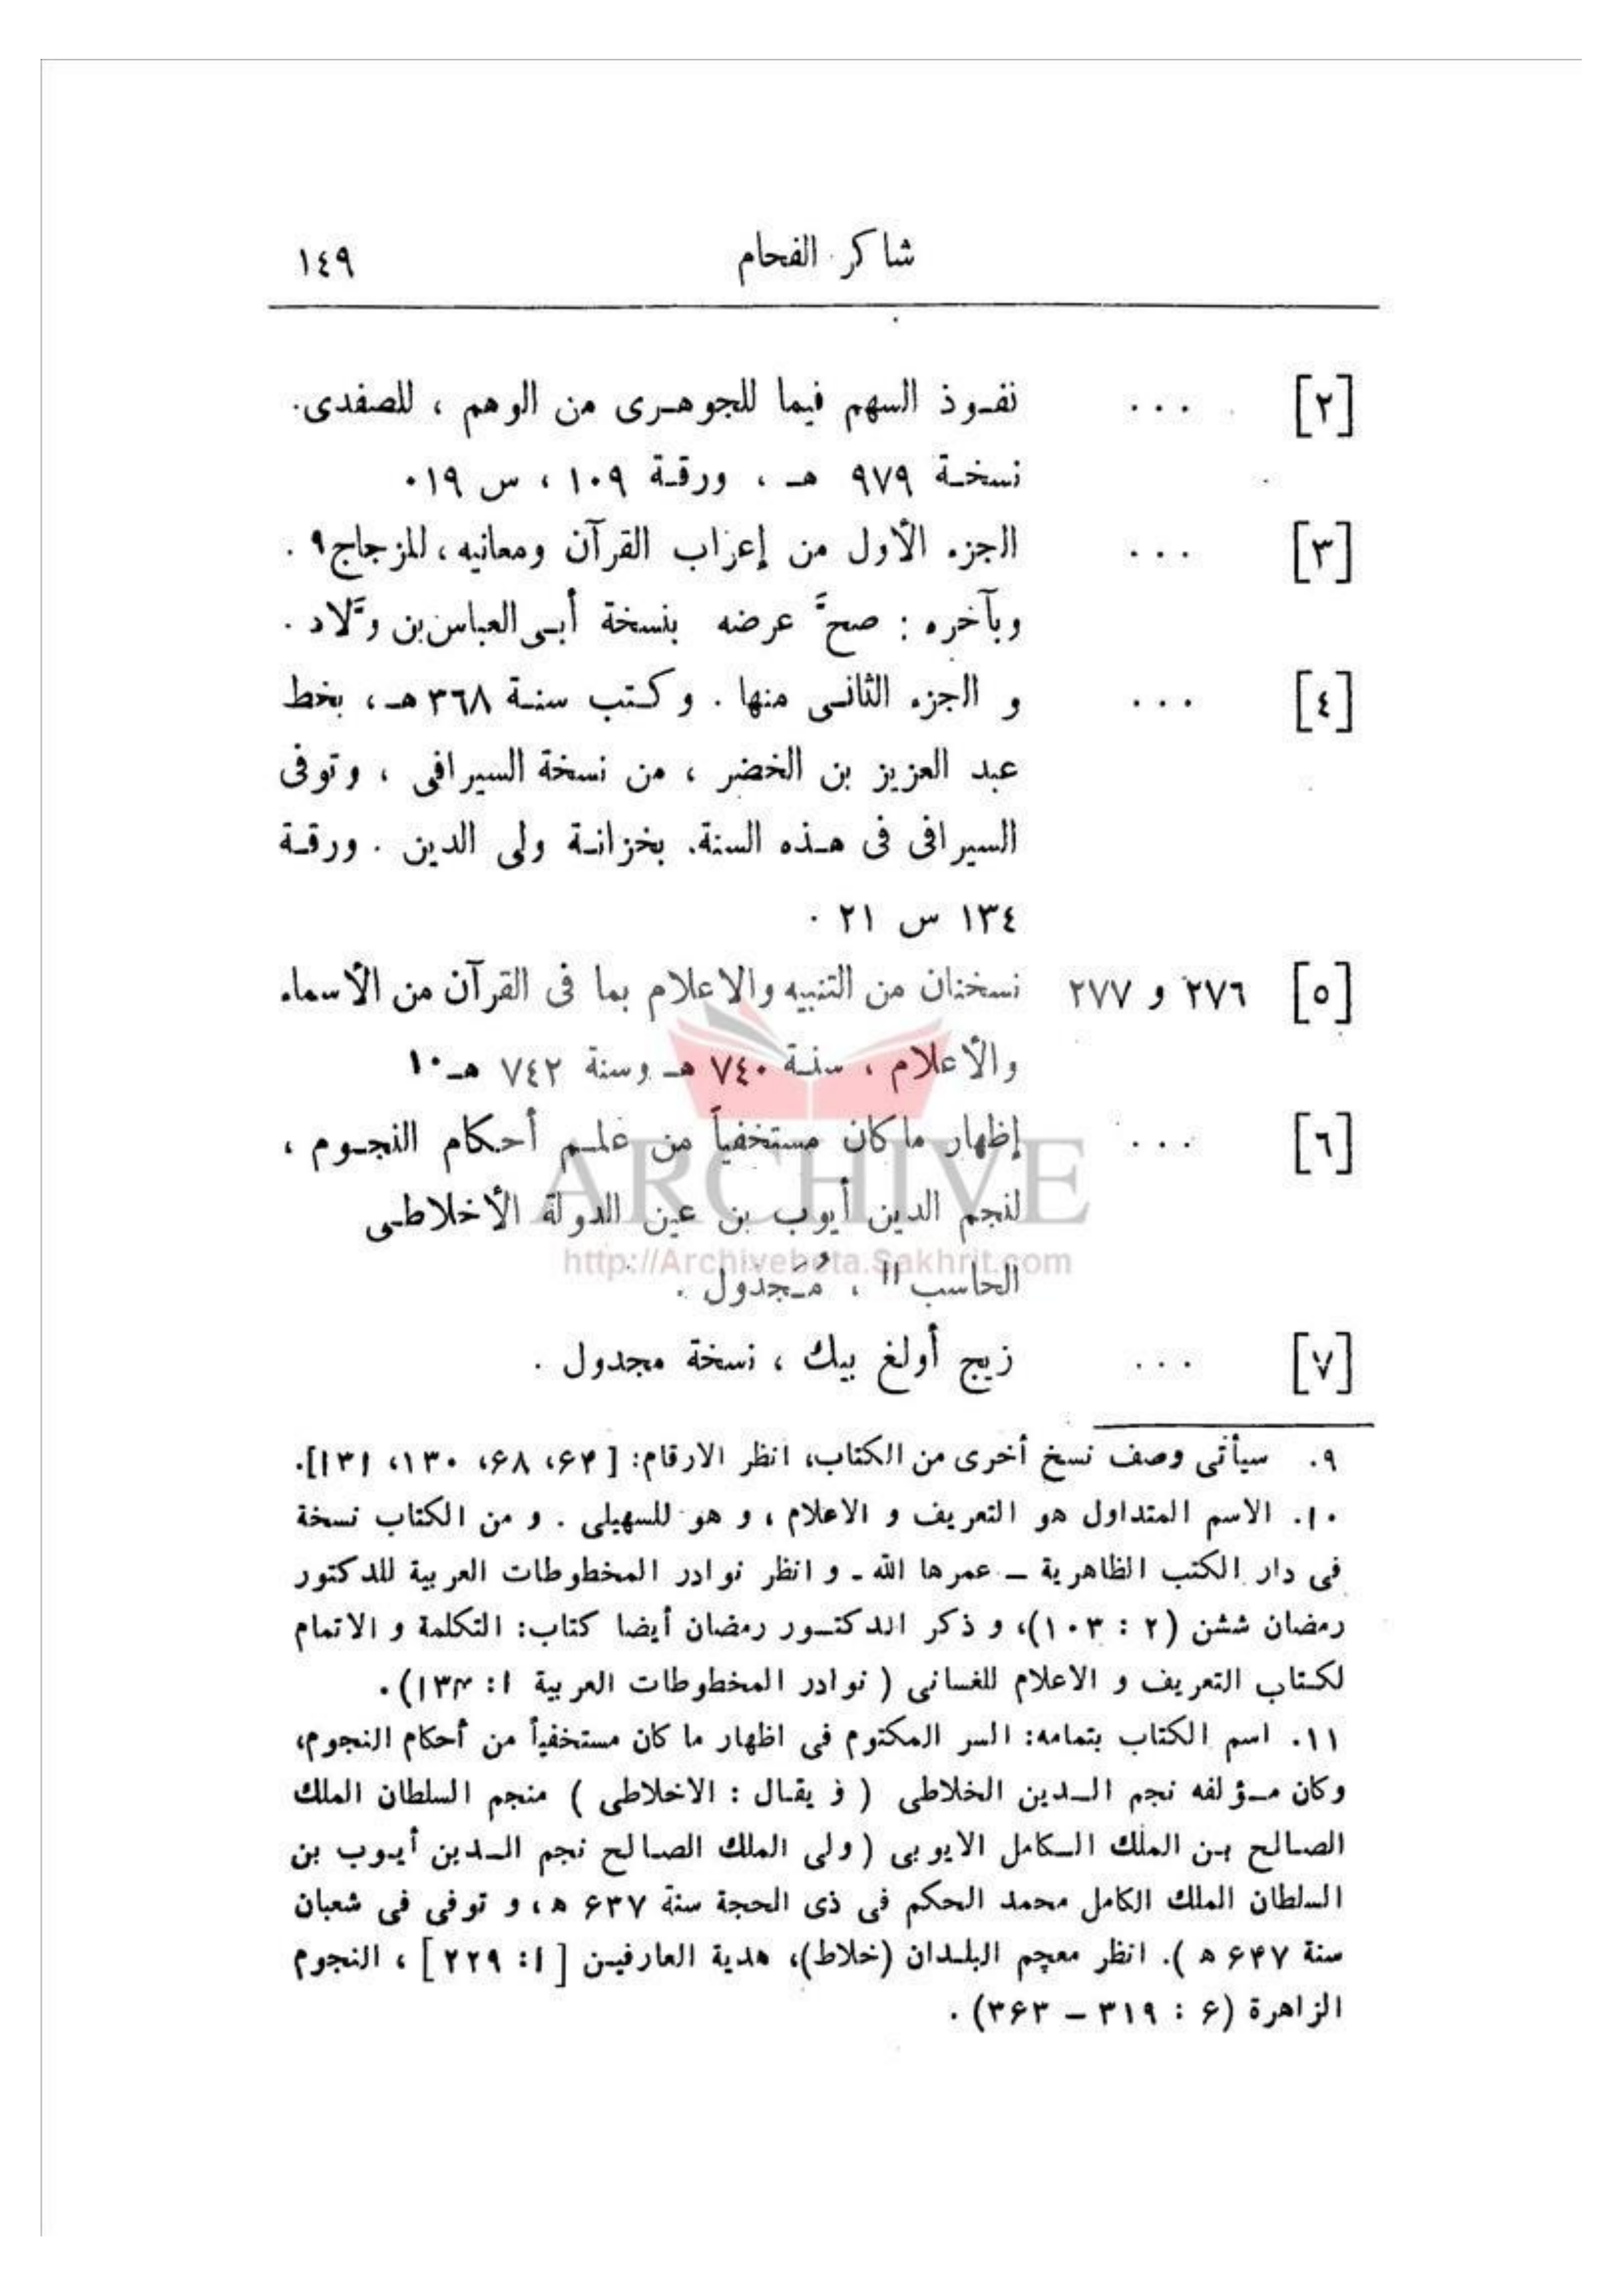 شاكر الفحام ١٤٩
[٢] ... نفـوذ السهم فيما للجوهـرى من الوهم ، للصفدى.
نسخـة ٩٧٩ هـ ، ورقـة ١٠٩ ، س ١٩٠
[٣] ... الجزء الأول من إعراب القرآن ومعانيه ، للزجاج٩ .
وبآخره : صحَّ عرضه بنسخة أبـى العباس بن ولَّاد .
[٤] ... و الجزء الثانـى منها . و كـتب سنـة ٣٦٨ هـ ، بخط
عبد العزيز بن الخضر ، من نسخة السيرافى ، وتوفى
السيرافى فى هـذه السنة. بخزانـة ولى الدين . ورقـة
١٣٤ س ٢١ .
[٥] ٢٧٦ و ٢٧٧ نسختان من التنبيه والاعلام بما فى القرآن من الأسماء
والأعلام ، سنـة ٧٤٠ هـ وسنة ٧٤٢ هـ١٠
[٦] ... إظهار ما كان مستخفياً من علـم أحكام النجـوم ،
لنجم الدين أيوب بن عين الدولة الأخلاطـى
الحاسب١١ ، مُـجَدْول .
[٧] ... زيج أولغ بيك ، نسخة مجدول .
ARCHIVE
http://Archivebeta.Sakhrit.com
٩. سيأتى وصف نسخ أخرى من الكتاب، انظر الارقام: [ ۶۴، ۶۸، ١٣٠، ١٣١].
١٠. الاسم المتداول هو التعريف و الاعلام ، و هو للسهيلى . و من الكتاب نسخة
فى دار الكتب الظاهرية ـ عمرها الله ـ و انظر نوادر المخطوطات العربية للدكتور
رمضان ششن (٢ : ١٠٣)، و ذكر الدكتـور رمضان أيضا كتاب: التكلمة و الاتمام
لكتاب التعريف و الاعلام للغسانى ( نوادر المخطوطات العربية ١: ١٣۴).
١١. اسم الكتاب بتمامه: السر المكتوم فى اظهار ما كان مستخفياً من أحكام النجوم،
وكان مـؤلفه نجم الـدين الخلاطى ( و يقـال : الاخلاطى ) منجم السلطان الملك
الصالح بـن الملك الـكامل الايوبى ( ولى الملك الصالح نجم الـدين أيـوب بن
السلطان الملك الكامل محمد الحكم فى ذى الحجة سنة ۶٣٧ ه‍، و توفى فى شعبان
سنة ۶۴٧ ه‍ ). انظر معجم البلـدان (خلاط)، هدية العارفيـن [١: ٢٢٩] ، النجوم
الزاهرة (۶ : ٣١٩ ـ ٣۶٣) .